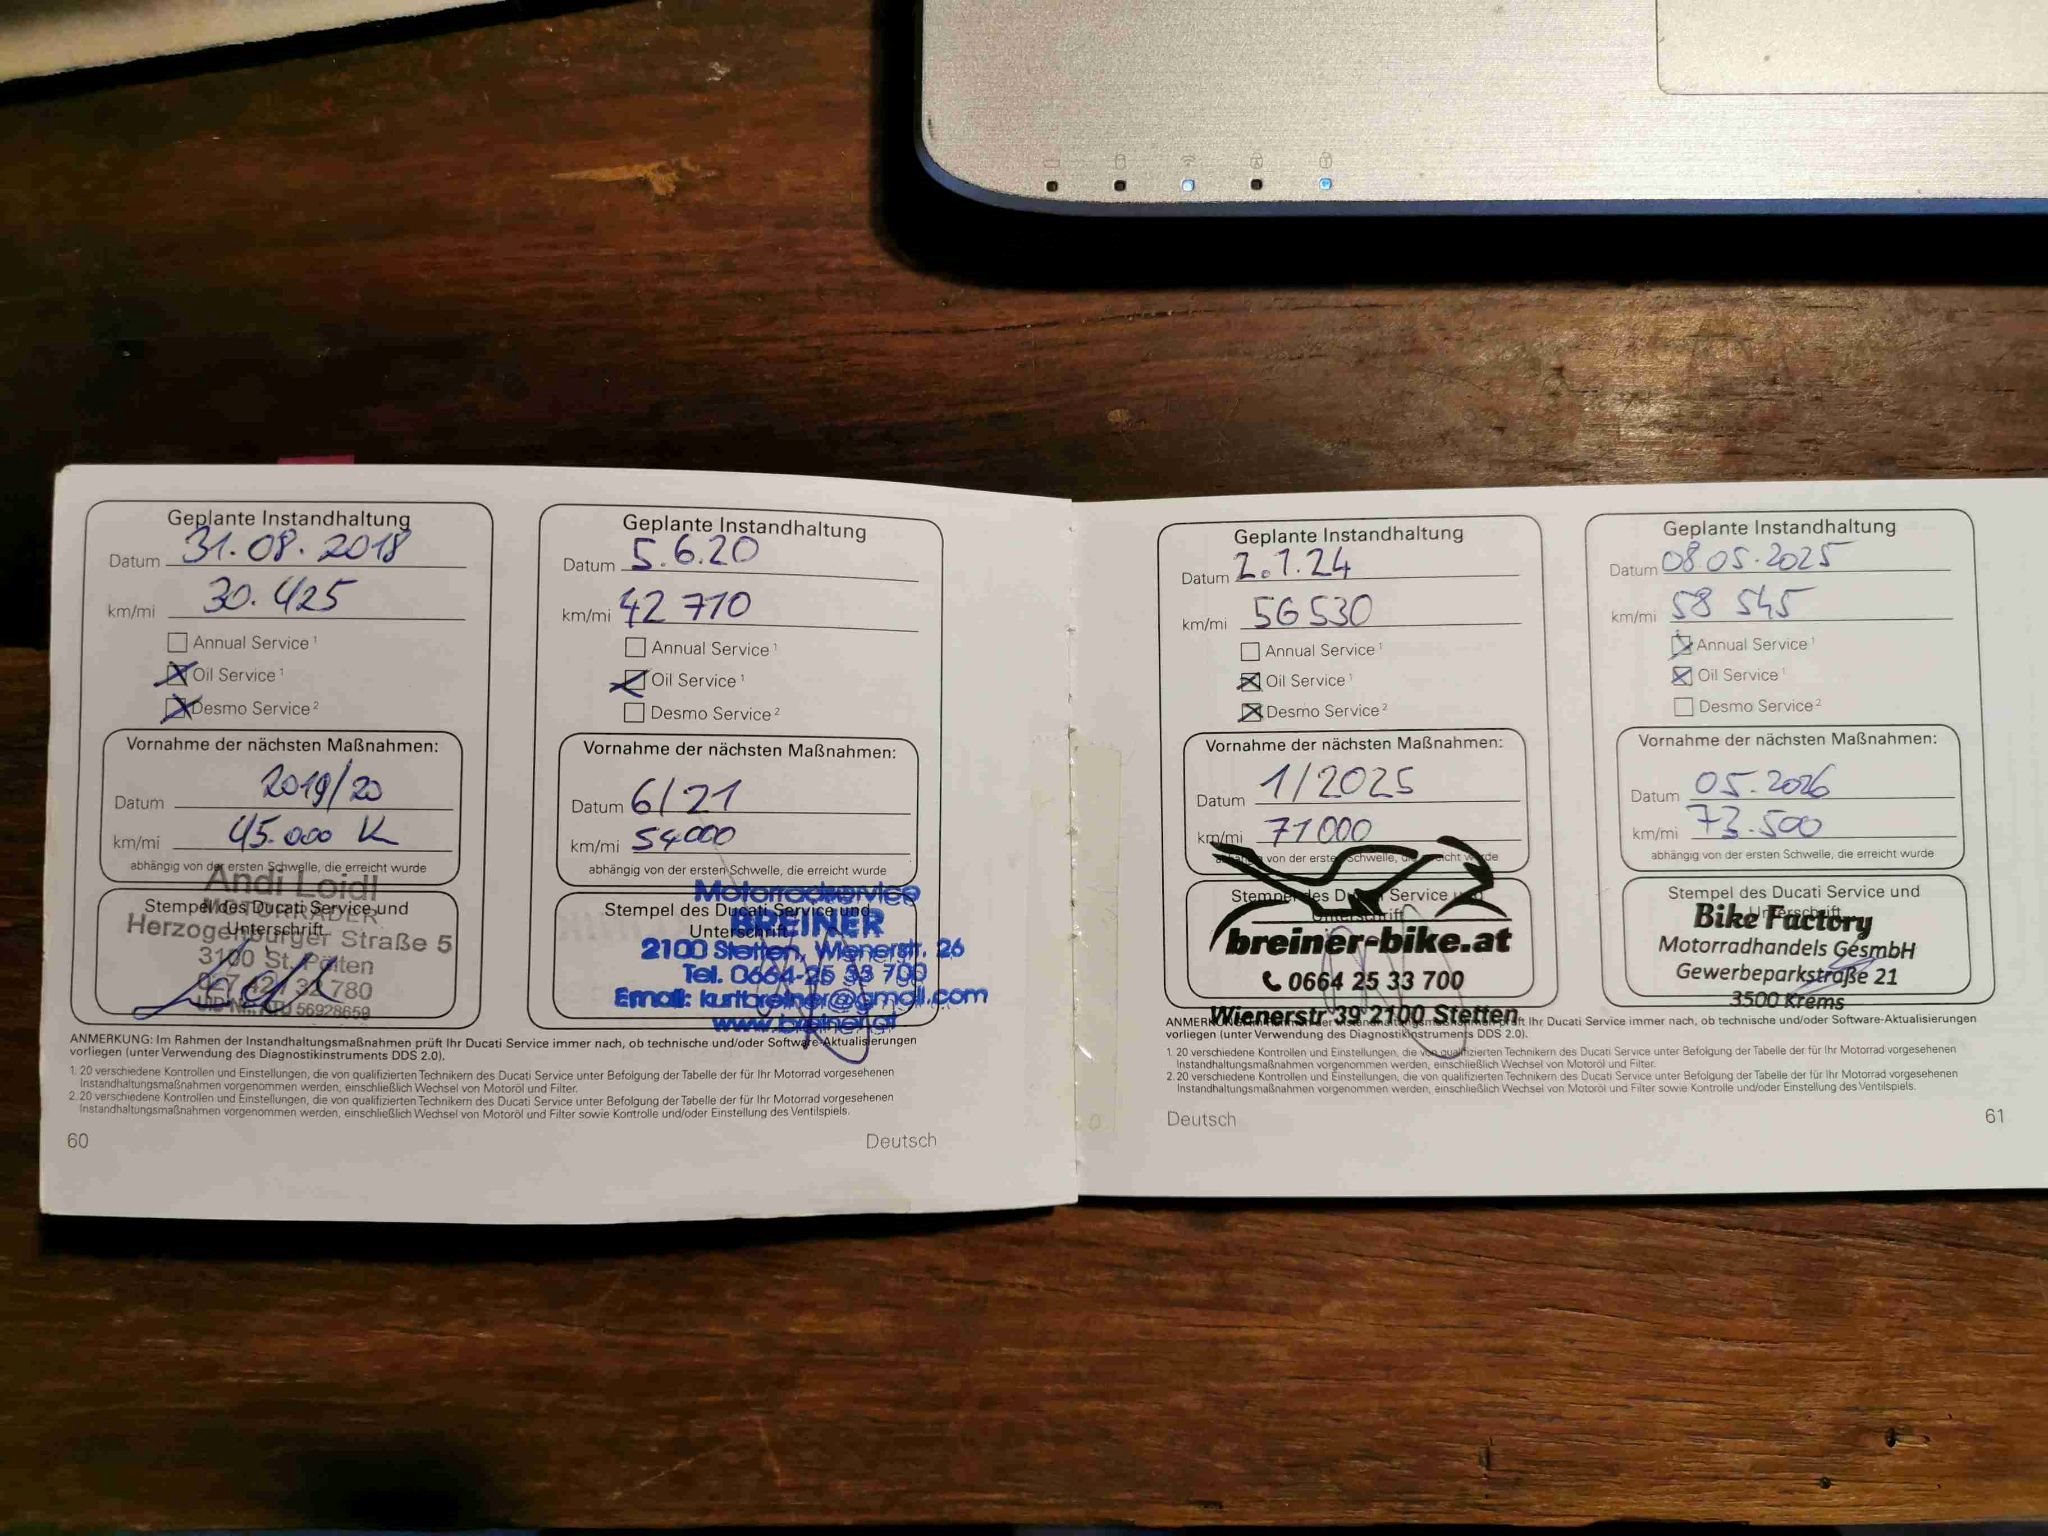 Geplante Instandhaltung
Datum 31.08.2018
km/mi 30.425
Annual Service ¹
Oil Service ¹
Desmo Service ²
Vornahme der nächsten Maßnahmen:
Datum 2019/20
km/mi 45.000 K
abhängig von der ersten Schwelle, die erreicht wurde
Andi Loidl
MOTORRÄDER
Stempel des Ducati Service und
Unterschrift
Herzogenburger Straße 5
3100 St. Pölten
Geplante Instandhaltung
Datum 5.6.20
km/mi 42 710
Annual Service ¹
Oil Service ¹
Desmo Service ²
Vornahme der nächsten Maßnahmen:
Datum 6/21
km/mi 54000
abhängig von der ersten Schwelle, die erreicht wurde
Motorradservice
Stempel des Ducati Service und
BREINER
Unterschrift
2100 Stetten, Wienerstr. 26
Tel. 0664-25 33 700
Email: kurtbreiner@gmail.com
www.breiner.at
ANMERKUNG: Im Rahmen der Instandhaltungsmaßnahmen prüft Ihr Ducati Service immer nach, ob technische und/oder Software-Aktualisierungen
vorliegen (unter Verwendung des Diagnostikinstruments DDS 2.0).
1. 20 verschiedene Kontrollen und Einstellungen, die von qualifizierten Technikern des Ducati Service unter Befolgung der Tabelle der für Ihr Motorrad vorgesehenen
Instandhaltungsmaßnahmen vorgenommen werden, einschließlich Wechsel von Motoröl und Filter.
2. 20 verschiedene Kontrollen und Einstellungen, die von qualifizierten Technikern des Ducati Service unter Befolgung der Tabelle der für Ihr Motorrad vorgesehenen
Instandhaltungsmaßnahmen vorgenommen werden, einschließlich Wechsel von Motoröl und Filter sowie Kontrolle und/oder Einstellung des Ventilspiels.
60
Deutsch
Geplante Instandhaltung
Datum 2.1.24
km/mi 56530
Annual Service ¹
Oil Service ¹
Desmo Service ²
Vornahme der nächsten Maßnahmen:
Datum 1/2025
km/mi 71000
abhängig von der ersten Schwelle, die erreicht wurde
Stempel des Ducati Service und
Unterschrift
breiner-bike.at
0664 25 33 700
Wienerstr 39 2100 Stetten
Geplante Instandhaltung
Datum 08.05.2025
km/mi 58 545
Annual Service ¹
Oil Service ¹
Desmo Service ²
Vornahme der nächsten Maßnahmen:
Datum 05.2026
km/mi 73.500
abhängig von der ersten Schwelle, die erreicht wurde
Stempel des Ducati Service und
Unterschrift
Bike Factory
Motorradhandels GesmbH
Gewerbeparkstraße 21
3500 Krems
ANMERKUNG: Im Rahmen der Instandhaltungsmaßnahmen prüft Ihr Ducati Service immer nach, ob technische und/oder Software-Aktualisierungen
vorliegen (unter Verwendung des Diagnostikinstruments DDS 2.0).
1. 20 verschiedene Kontrollen und Einstellungen, die von qualifizierten Technikern des Ducati Service unter Befolgung der Tabelle der für Ihr Motorrad vorgesehenen
Instandhaltungsmaßnahmen vorgenommen werden, einschließlich Wechsel von Motoröl und Filter.
2. 20 verschiedene Kontrollen und Einstellungen, die von qualifizierten Technikern des Ducati Service unter Befolgung der Tabelle der für Ihr Motorrad vorgesehenen
Instandhaltungsmaßnahmen vorgenommen werden, einschließlich Wechsel von Motoröl und Filter sowie Kontrolle und/oder Einstellung des Ventilspiels.
Deutsch
61